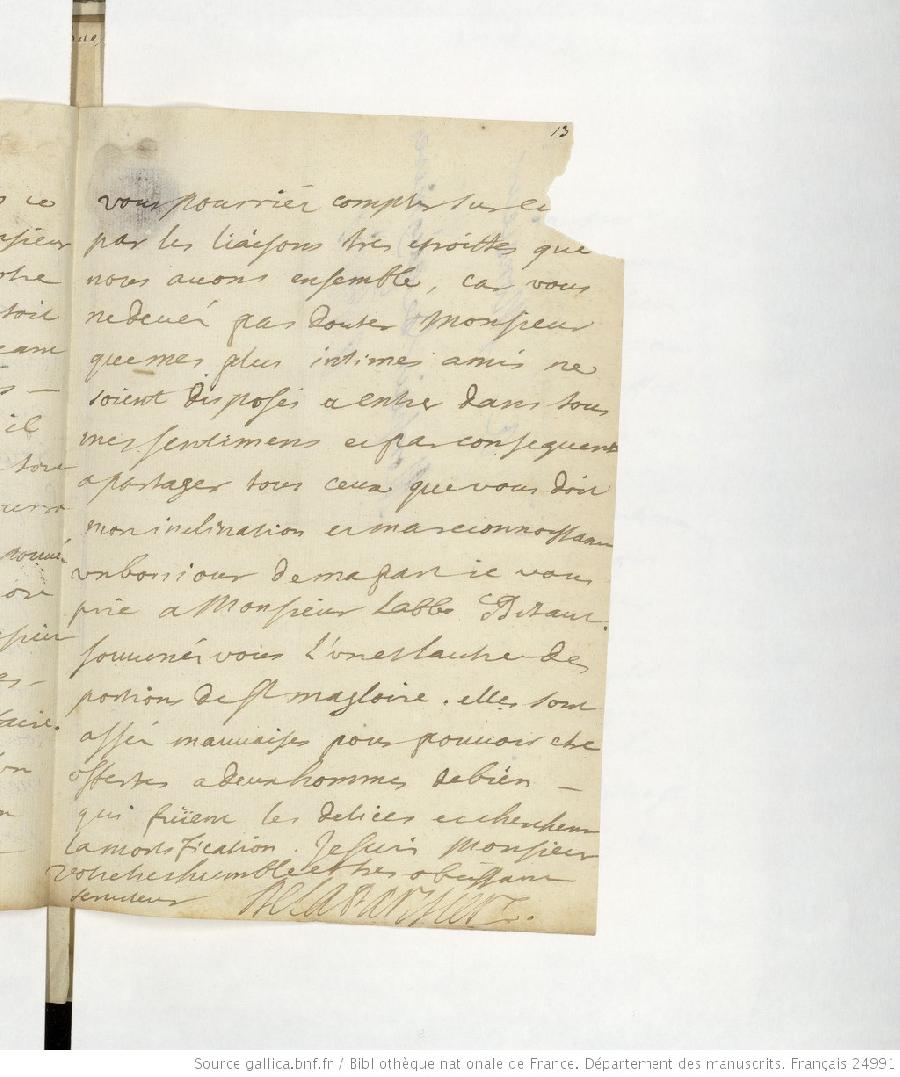 13
vous pourriér compter sur
par les liaisons tres etroittes que
nous auons ensemble, car vous
ne deuér pas douter Monsieur
que mes plus intimes amis ne
soient disposés a entrer dans tous
mes sentimens et par consequent
a partager tous ceux que vous doit
mon inclination et ma reconnoissance
un bon iour de ma part ie vous
prie a Monsieur Labbé
souuenér vous L'un et lautre des
portions de st magloire. elles sont
assér mauuaises pour pouuoir etre
offertes a deux hommes de bien
qui fuient les delices et cherchent
la mortification. Je suis Monsieur
votre tres humble et tres obeissant
seruiteur
Source gallica.bnf.fr / Bibliothèque nationale de France. Département des manuscrits. Français 24991